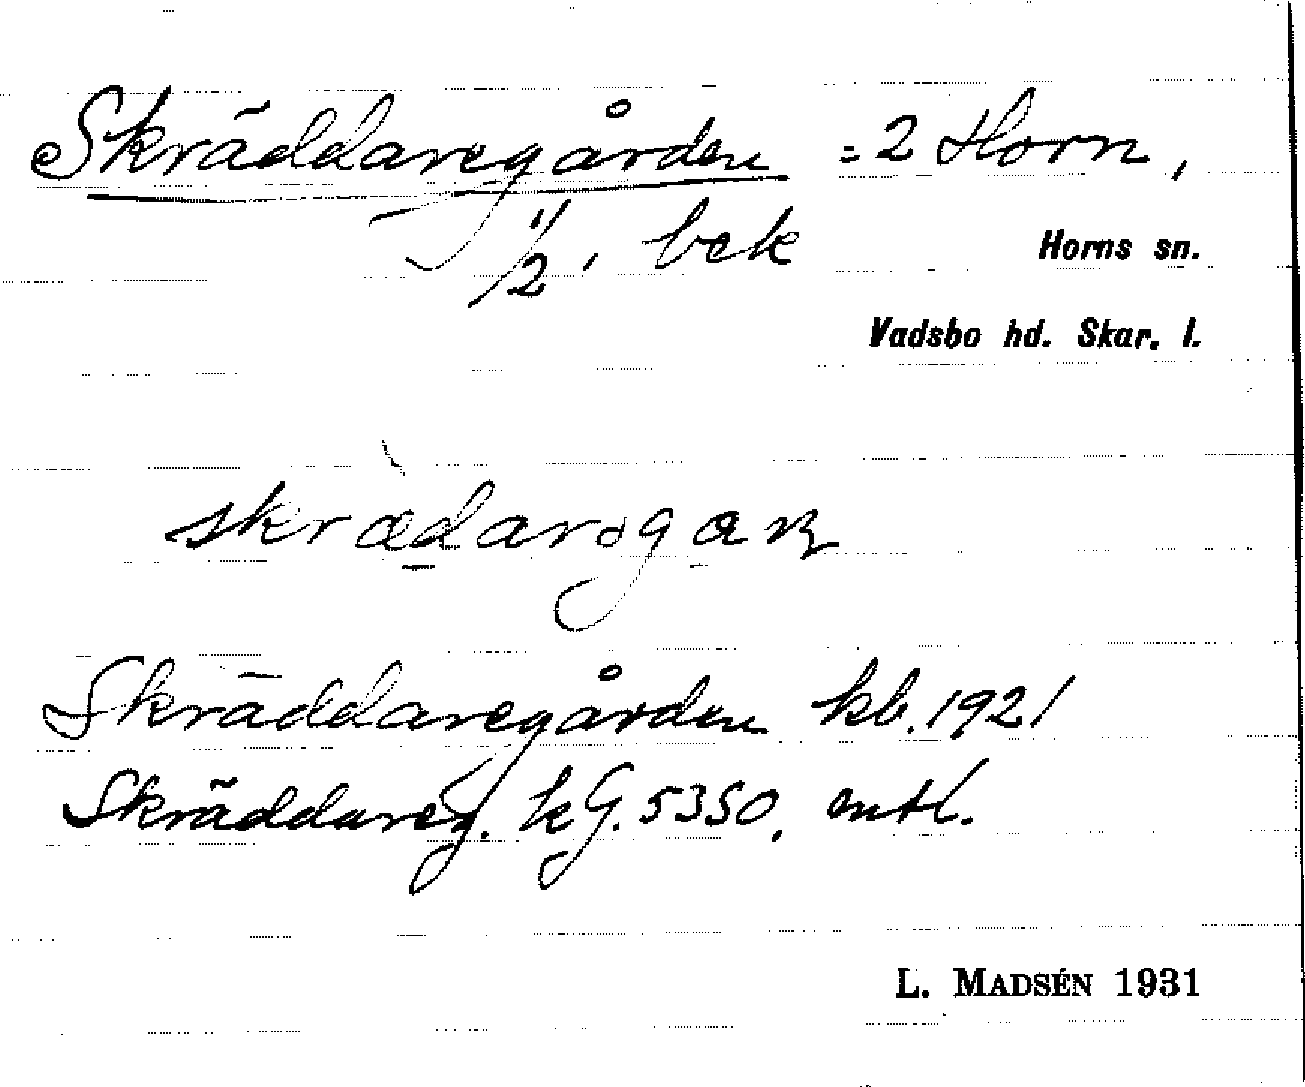 Skräddaregården = 2 Horn,
1/2, bek
Horns sn.
Vadsbo hd. Skar. l.
skrædarəgaɳ
Skräddaregården kb. 1921
Skräddareg. kG. 5350, mtl.
L. MADSÉN 1931